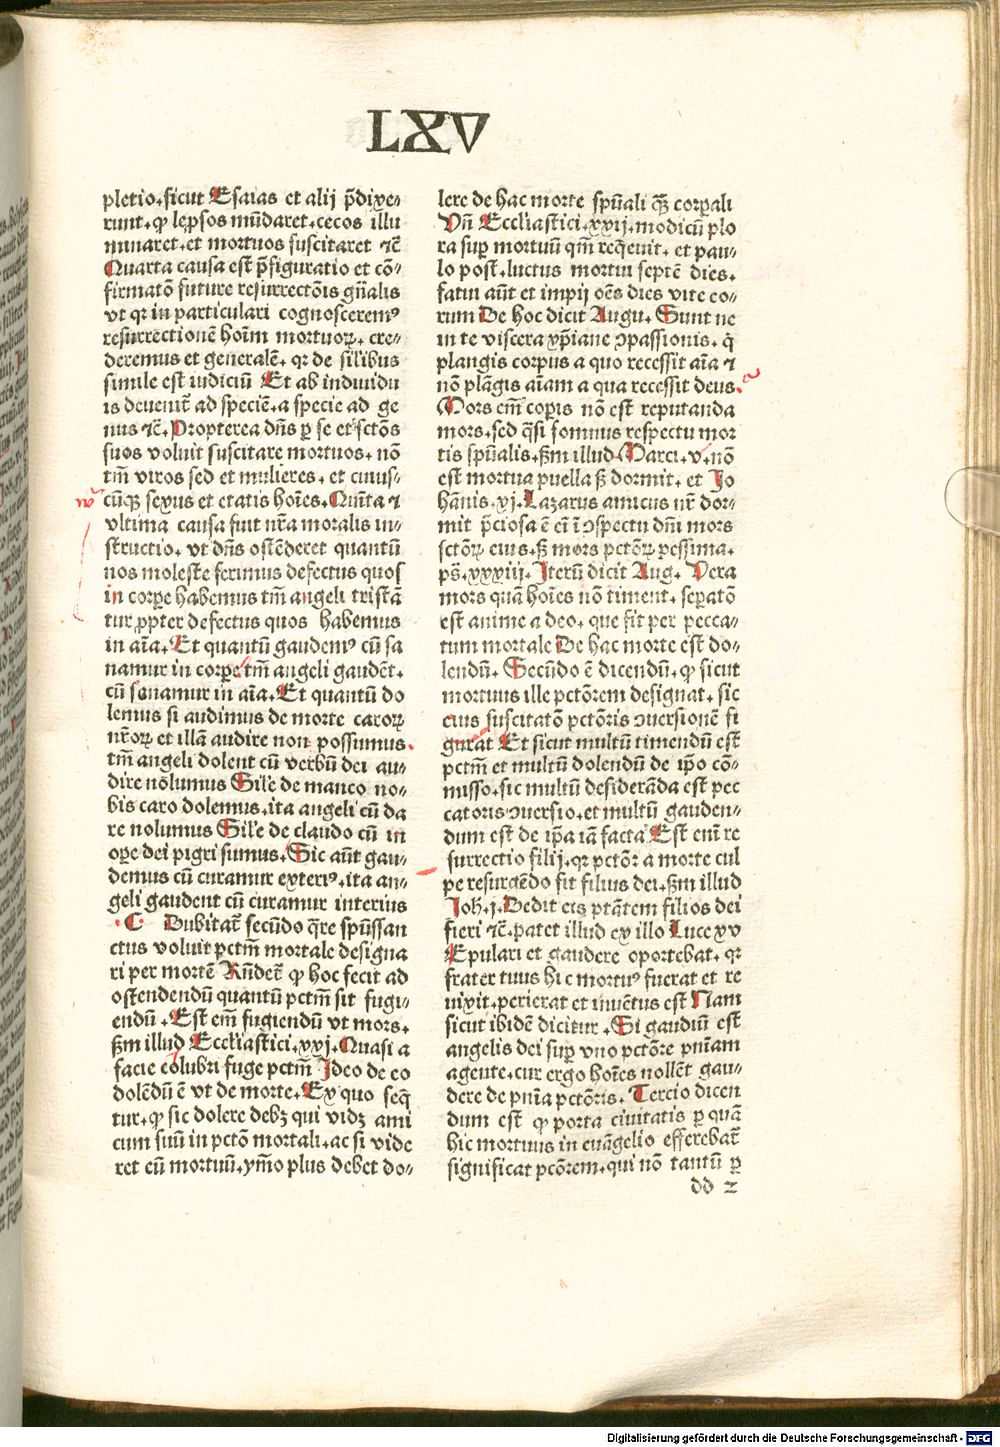 LXV
pletio.sicut Esaias et alij p̄dixe-
runt.ꝙ lep̄sos mūdaret.cecos illu
minaret.et mortuos suscitaret ⁊c̄
Quarta causa est p̄figuratio et cō-
firmatō future resurrectōis gn̄alis
vt qꝛ in particulari cognosceremꝰ
resurrectionē hoīm mortuoꝝ.cre-
deremus et generalē.qꝛ de sīlibus
simile est iudiciū Et ab indiuidu
is deuenit̄ ad speciē.a specie ad ge
nus ⁊c̄.Propterea dn̄s ꝑ se et sctōs
suos voluit suscitare mortuos.nō
tm̄ viros sed et mulieres.et cuius-
cūqꝫ sexus et etatis hoīes.Quīta ⁊
vltima causa fuit nr̄a moralis in-
structio.vt dn̄s ostēderet quantū
nos moleste ferimus defectus quos
in corꝑe habemus tm̄ angeli tristā
tur ꝓpter defectus quos habemus
in aīa.Et quantū gaudemꝰ cū sa
namur in corꝑe tm̄ angeli gaudēt.
cū sanamur in aīa.Et quantū do
lemus si audimus de morte caroꝝ
nr̄oꝝ et illā audire non possumus.
tm̄ angeli dolent cū verbū dei au-
dire nolumus Sil'e de manco no-
bis caro dolemus.ita angeli cū da
re nolumus Sil'e de claudo cū in
oꝑe dei pigri sumus.Sic aūt gau-
demus cū curamur exteriꝰ.ita an-
geli gaudent cū curamur interius
.C Dubitat̄ secūdo q̄re spūssan
ctus voluit pctm̄ mortale designa
ri per mortē Rn̄det̄ ꝙ hoc fecit ad
ostendendū quantū pctm̄ sit fugi-
endū.Est em̄ fugiendū vt mors.
ẜm illud Eccliastici.xxj.Quasi a
facie colubri fuge pctm̄ Ideo de eo
dolēdū ē vt de morte.Ex quo seq̄
tur.ꝙ sic dolere debꝫ qui vidꝫ ami
cum suū in pctō mortali.ac si vide
ret eū mortuū.ymo plus debet do-
lere de hac morte spūali qꝫ̄ corꝑali
Vn̄ Eccliastici.xxij.modicū plo
ra suꝑ mortuū qm̄ req̄euit.et pau-
lo post.luctus mortui septē dies.
fatui aūt et impij oēs dies vite eo-
rum De hoc dicit Augu.Sunt ne
in te viscera xp̄iane ꝯpassionis.q̄
plangis corpus a quo recessit aīa ⁊
nō plāgis aīam a qua recessit deus.
Mors em̄ coꝑis nō est reputanda
mors.sed q̄si somnus respectu mor
tis spūalis.ẜm illud Marci.v.nō
est mortua puella ß dormit.et Jo
hānis.xj.Lazarus amicus nr̄ dor-
mit p̄ciosa ē ei̅ ī ꝯspectu dn̄i mors
sctōꝝ eius.ß mors pctōꝝ pessima.
ps̄.xxxiij.Iterū dicit Aug.Vera
mors quā hoīes nō timent.seꝑatō
est anime a deo.que fit per pecca-
tum mortale De hac morte est do-
lendū.Secūdo ē dicendū.ꝙ sicut
mortuus ille pctōrem designat.sic
eius suscitatō pctōris ꝯuersionē fi
gurat Et sicut multū timendū est
pctm̄ et multū dolendū de ip̄o cō-
misso.sic multū desiderāda est pec
catoris ꝯuersio.et multū gauden-
dum est de ip̄a iā facta Est eni̅ re
surrectio filij.qꝛ pctōꝛ a morte cul
pe resurgēdo fit filius dei.ẜm illud
Joh.j.Dedit eis ptāt̄em filios dei
fieri ⁊c̄.patet illud ex illo Luce xv
Epulari et gaudere oportebat.qꝛ
frater tuus hic mortuꝰ fuerat et re
uixit.perierat et inuētus est Nam
sicut ibidē dicitur.Si gaudiū est
angelis dei suꝑ vno pctōre pniam
agente.cur ergo hoīes nollēt gau-
dere de pnīa pctōris.Tercio dicen
dum est ꝙ porta ciuitatis ꝑ quā
hic mortuus in euāgelio efferebat̄
significat pcōrem.qui nō tantū ꝑ
dd 2
Digitalisierung gefördert durch die Deutsche Forschungsgemeinschaft - DFG